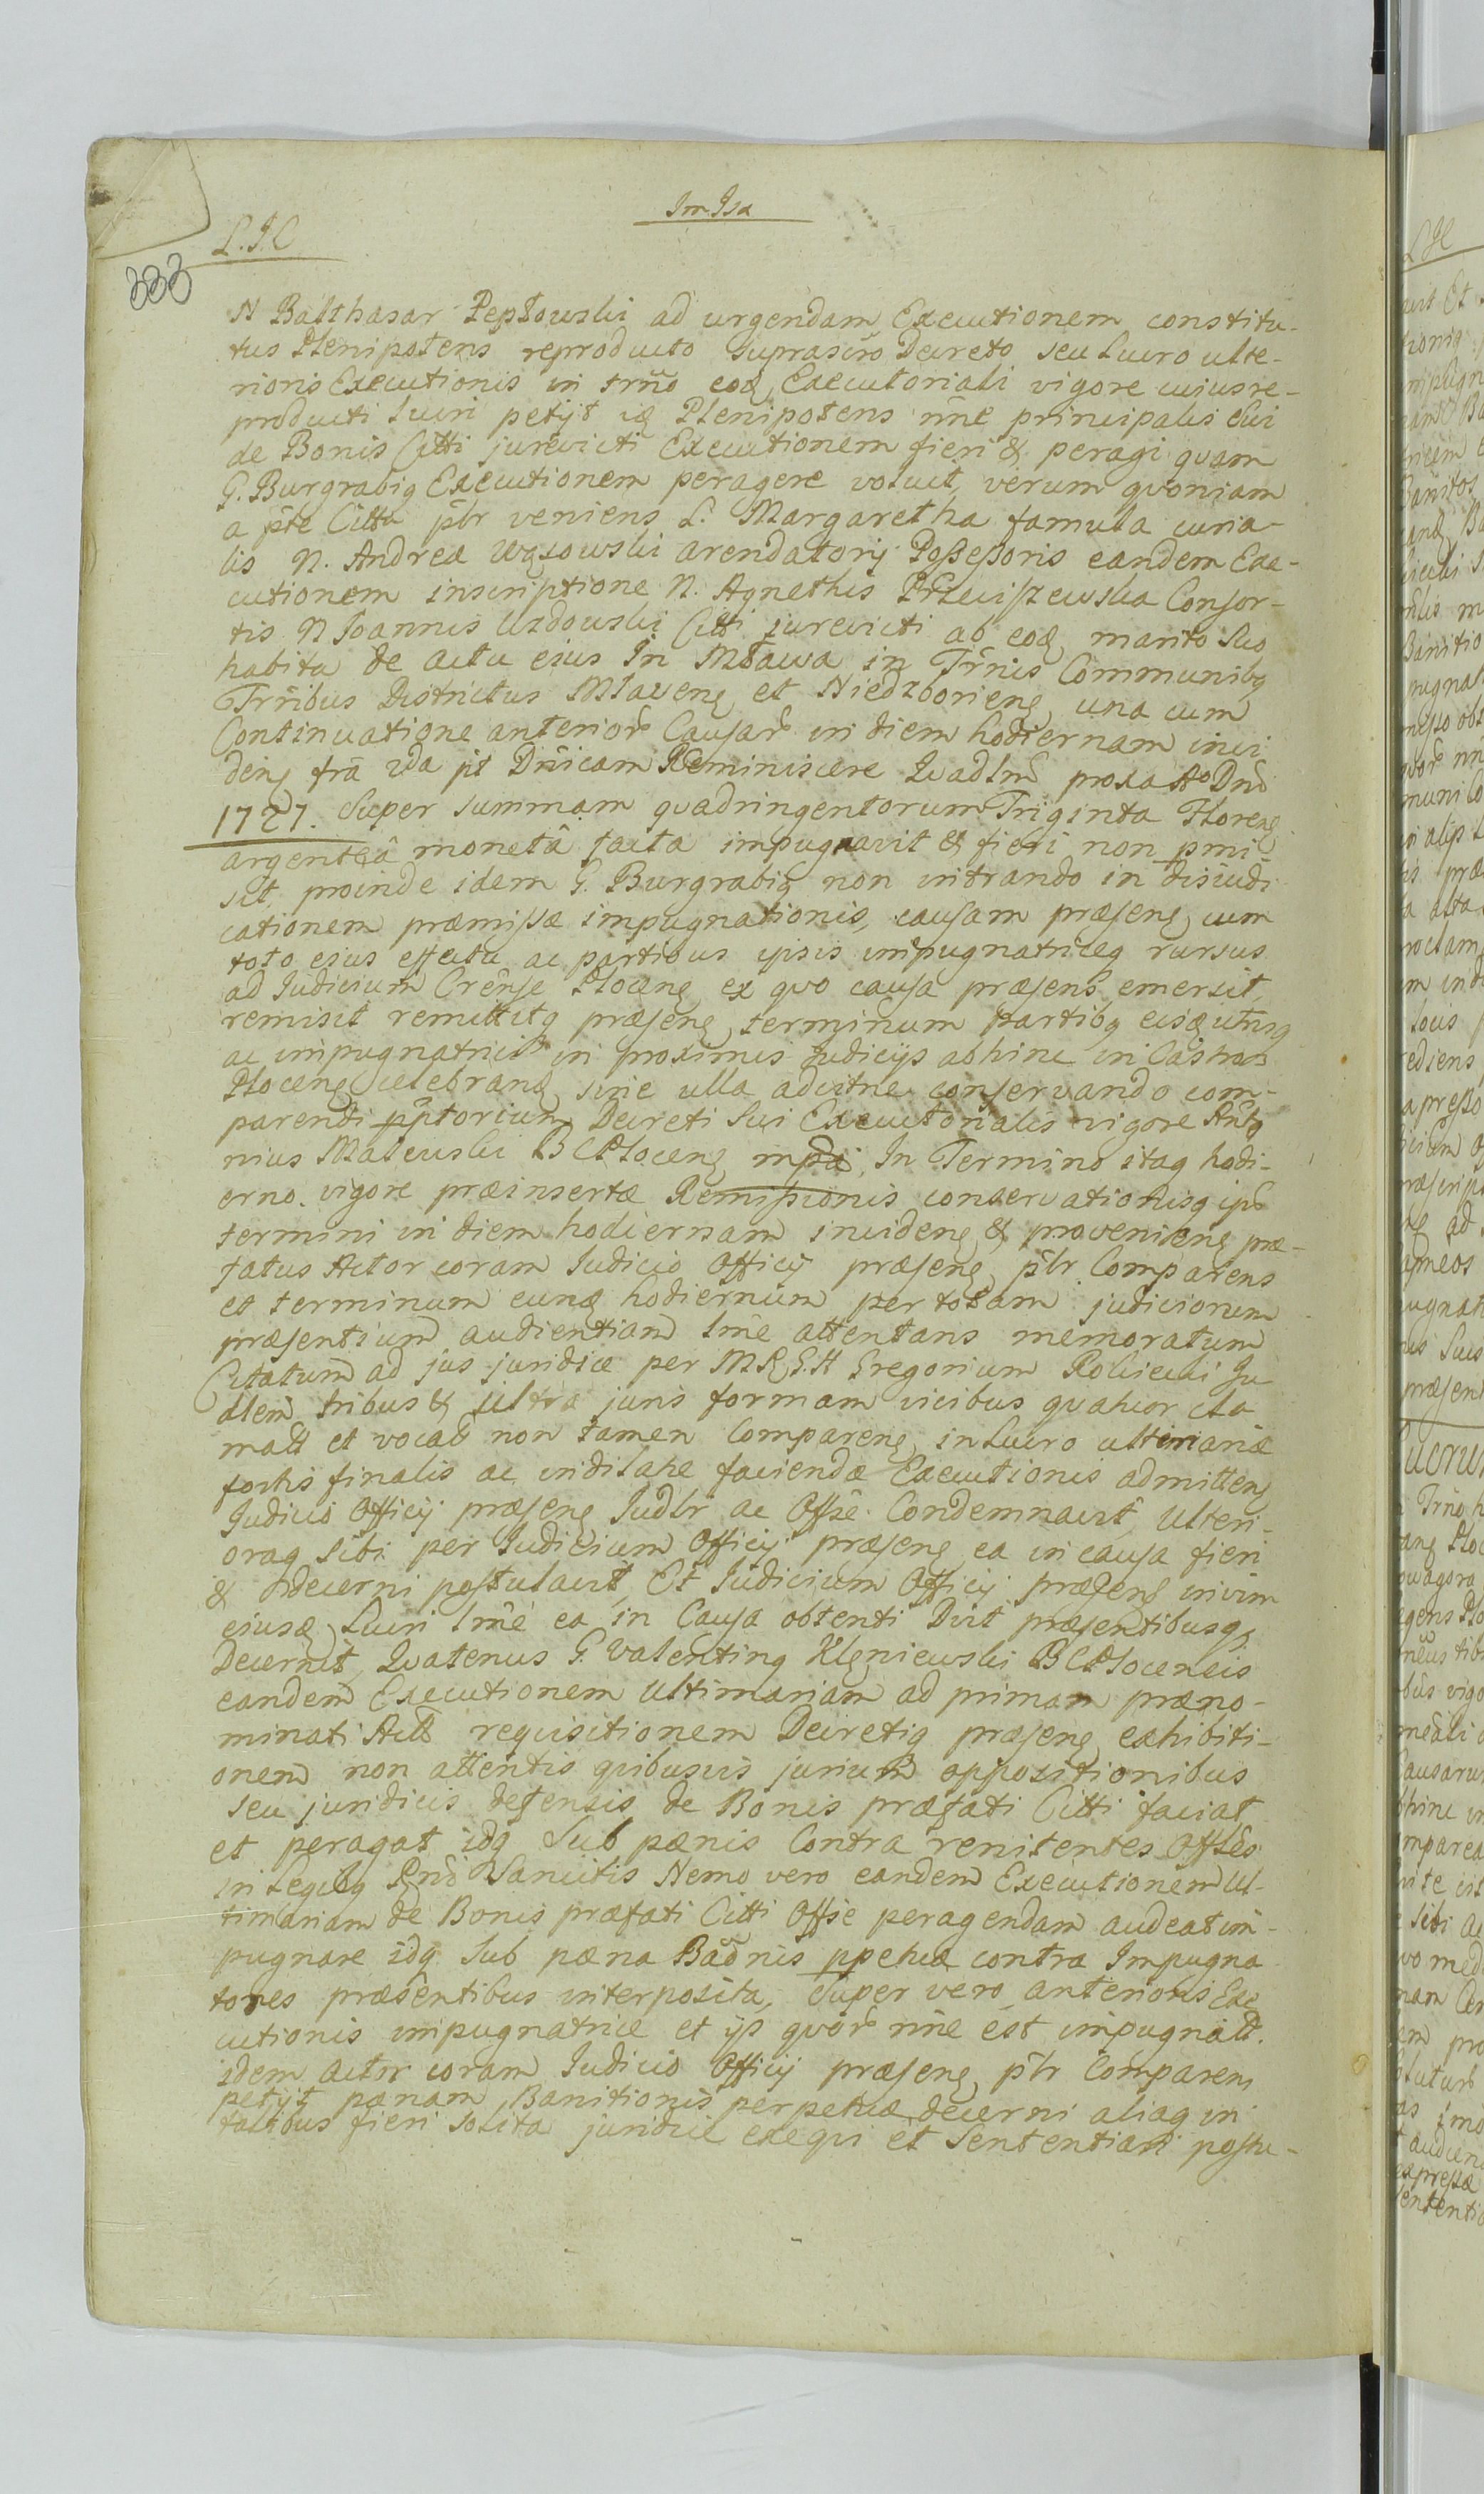 Im Isa
L. I. C.
333
N Balthasar Peptowski ad urgendam Executionem constitu-
tus Plenipotens reproducto suprascrõ Decreto seu Lucro ulte-
rioris Executionis in trñõ eoq Executoriali vigore cuius re-
producti lucri petijt iq Plenipotens nñe principalis sui
de Bonis Citti jurevicti Executionem fieri & peragi quam
G. Burgrabiq Executionem peragere voluit, verum quoniam
a pte Citta p̃lr veniens L. Margaretha famula curia-
lis N. Andreæ Wąsowski arendatorij Possessoris eandem Exe-
cutionem inscriptione N. Agnethis Przeciszewska Consor-
tis N Joannis Uzdowski Citti jurevicti ab eoq marito suo
habita de actu eius In Mława in Trñis Communibq
Trñibus Districtus Mlavenq et Niedzborienq una cum
Continuatione anteriorẽ Causarẽ in diem hodiernam inci
denq fr̃a 2da pt Dñicam Reminiscere Quadlmẽ proxa Ao Dnõ
1727. Super summam quadringentorum Triginta Florenq
argenteâ monetâ facta impugnavit & fieri non pmi-
sit, proinde idem G. Burgrabiq non intrando in dijudi
cationem præmissæ impugnationis, causam præsenq cum
toto eius effectu ac partibus ipsis impugnatriceq rursus
ad Judicium Crẽnse Plocenq ex quo causa præsens emersit,
remisit remittitq præsenq terminum partibq eisq utrisq
ac impugnatrici in proximis Judicijs abhinc in Castro
Plocenq celebranq sine ulla adcitne conservando com-
parendi p̃ptorium Decreti Sui Executorialis vigore Anto
nius Malewski B C Plocenq mpã. In Termino itaq hodi-
erno vigore præinsertæ Remissionis conservationisq ipẽ
termini in diem hodiernam incidenq & provenienq præ-
fatus Actor coram Judicio Officij præsenq p̃lr Comparens
et terminum eunq hodiernum per totam judiciorum
præsentium audientiam lmẽ attentans memoratum
Citatum ad jus juridice per M R G. H Gregorium Rolicuki Ju
dlem tribus & ultra juris formam vicibus quatuor cla
matt et vocatt non tamen Comparenq in Lucro ultimariæ
fortis finalis ac indilate faciendæ Executionis admittenq
Judicio Officij præsenq Judlr ac Offsẽ. Condemnavit, Ulteri-
oraq sibi per Judicium Officij præsenq ea in causa fieri
& decerni postulavit, Et Judicium Officij præsenq in vim
eiusq Lucri lmẽ ea in Causa obtenti Dixit præsentibusq
Decernit, Quatenus G. Valentinq Klęniewski B C Plocensis
eandem Executionem Ultimariam ad primam præno-
minati Actt requisitionem Decretiq præsenq exhibiti-
onem non attentis quibusvis jurium oppositionibus
seu juridicis defensis de Bonis præfati Citti faciat
et peragat idq Sub pænis Contra renitentes Offles
in Legibq Rgni Sancitis Nemo vero eandem Executionem Ul-
timariam de Bonis præfati Citti Offse peragendam audeat im-
pugnare idq Sub pæna Banñis ppetuæ contra Impugna
tores præsentibus interposita, Super vero anterioris Exe
cutionis impugnatrice et ijs quorẽ nñe est impugnatt.
idem Actor coram Judicio Officij præsenq p̃lr Comparens
petijt pænam Banitionis perpetuæ decerni aliaq in
talibus fieri solita juridice exequi et Sententiari postu-